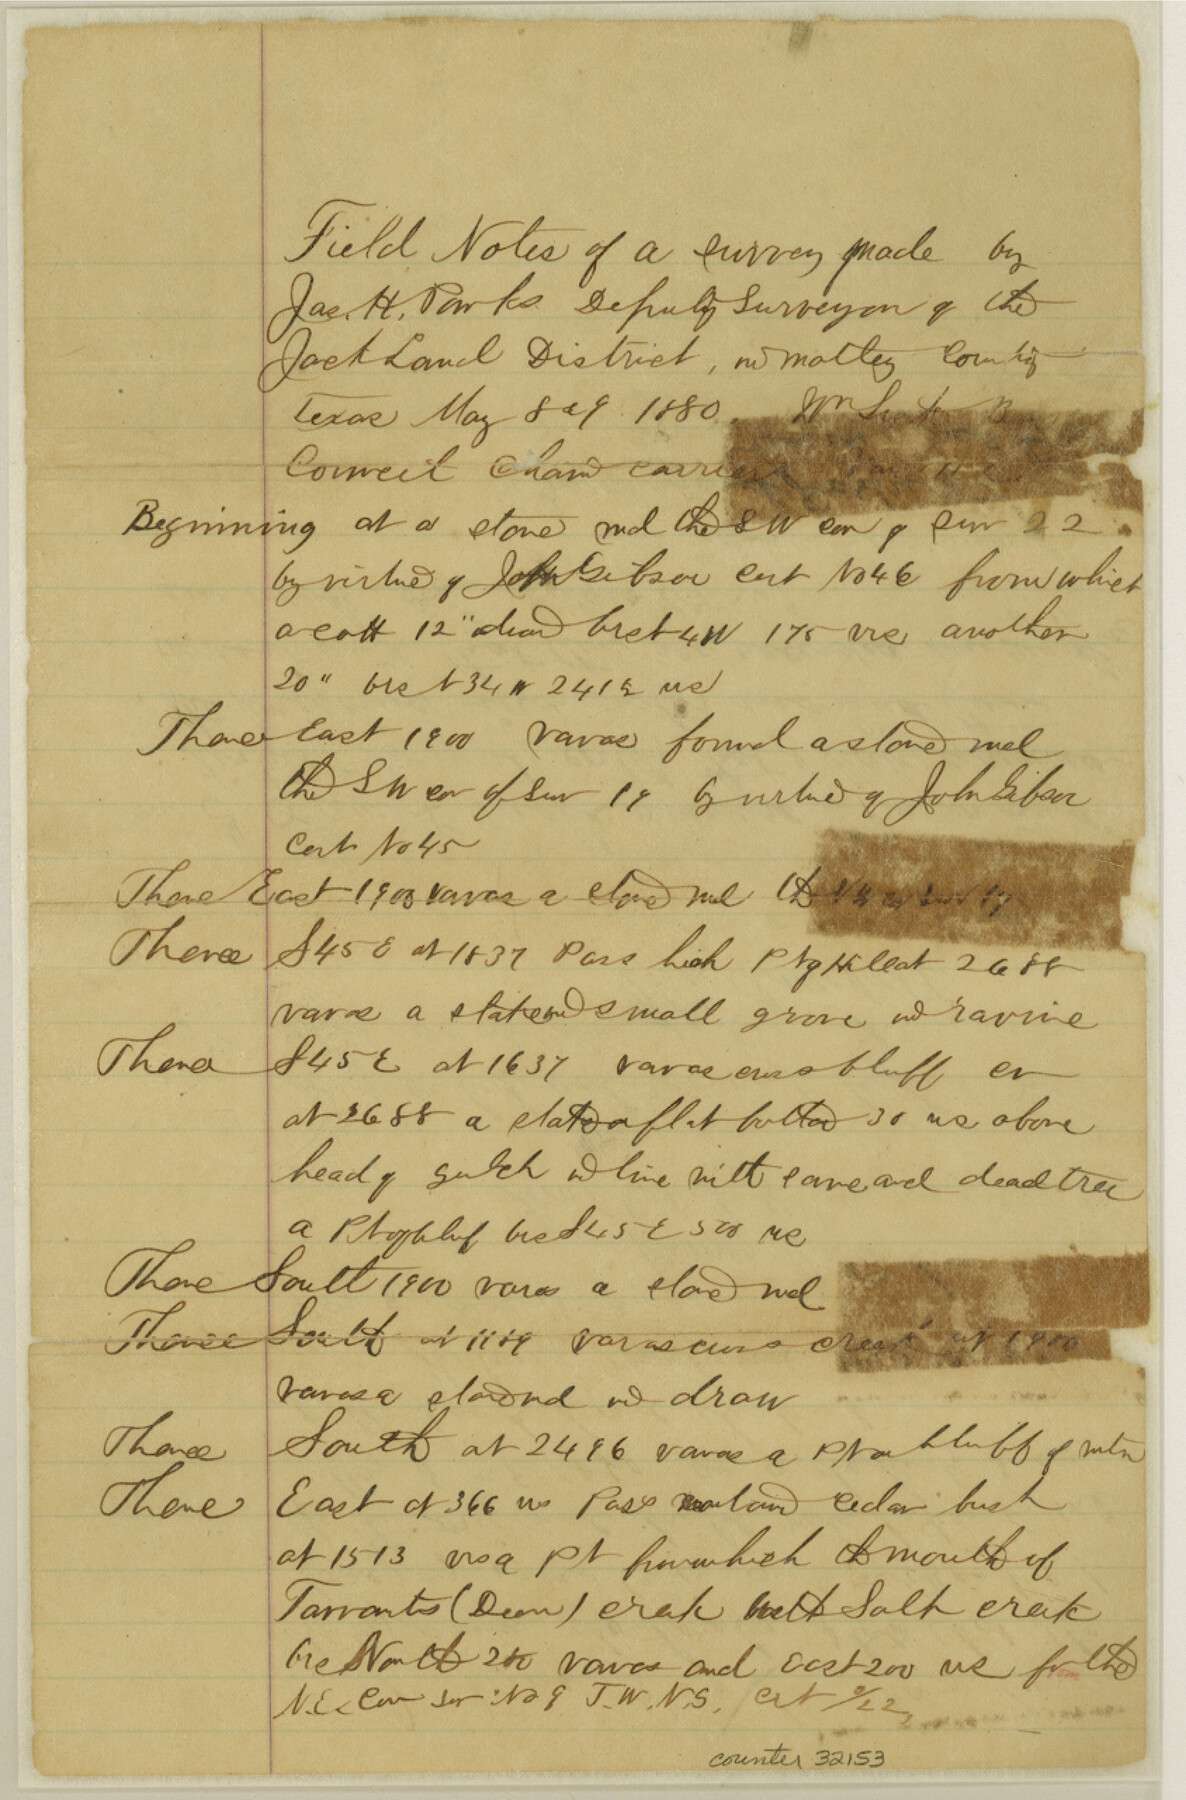 Field Notes of a survey made by
Jas. H. Parks Deputy Surveyor of the
Jack Land District, in Motley County
Texas May 8 & 9 1880.
Council Chain carriers
Beginning at a stone md the SW cor of Sur 22
by virtue of John Gibson Cert No 46 from which
a cott 12" dead brs N 4 W 175 vrs another
20" brs N 34 W 241 vrs
Thence East 1900 varas found a stone md
the SW cor of Sur 19 by virtue of John Gibson
Cert No 45
Thence East 1900 varas a stone md the
Thence S 45 E at 1837 Pass high Pt of Hill at 2688
varas a stake in small grove in ravine
Thence S 45 E at 1637 varas cross bluff
at 2688 a stake flat bottom 30 vrs above
head of gulch in line with same and dead tree
a Pt of bluf brs S 45 E 500 vrs
Thence South 1900 varas a stone md
Thence South at 1189 varas cross creek at 1900
varas a stone md in draw
Thence South at 2496 varas a Pt on bluff of mtn
Thence East at 366 vrs Pass cedar bush
at 1513 vrs a Pt from which the mouth of
Tarrants (Deon) creek with Salt creek
brs North 200 varas and East 200 vrs for the
N.E. Cor Sur No 9 T.W.N.G. Cert 2/22,
counter 32153